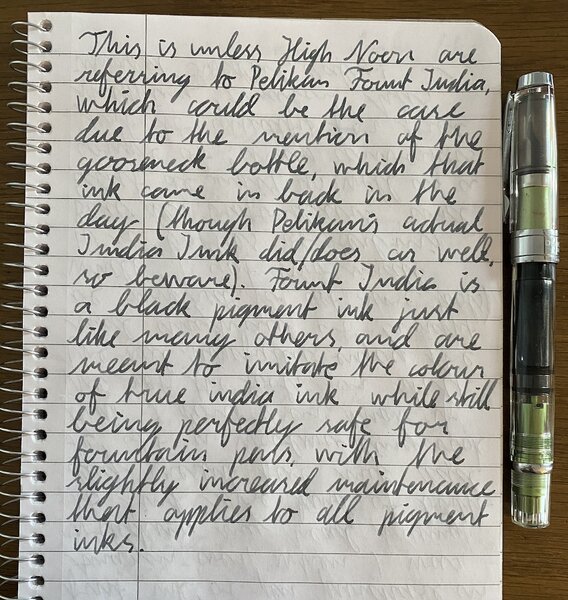 This is unless High Noon are
referring to Pelikan Fount India,
which could be the case
due to the mention of the
gooseneck bottle, which that
ink came in back in the
day (though Pelikan's actual
India Ink did/does as well,
so beware). Fount India is
a black pigment ink just
like many others, and are
meant to imitate the colour
of true india ink while still
being perfectly safe for
fountain pens, with the
slightly increased maintenance
that applies to all pigment
inks.